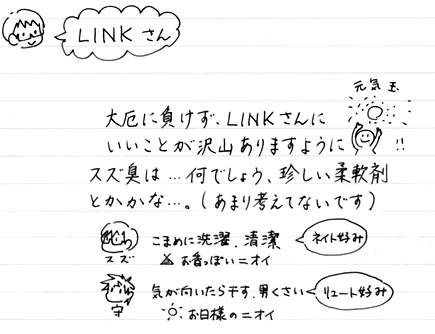 LINKさん
元気玉
大厄に負けず、LINKさんに
いいことが沢山ありますように !!
スズ臭は…何でしょう、珍しい柔軟剤
とかかな…。(あまり考えてないです)
こまめに洗濯、清潔 ネイト好み
スズ お香っぽいニオイ
気が向いたら干す、男くさい リュート好み
守 お日様のニオイ